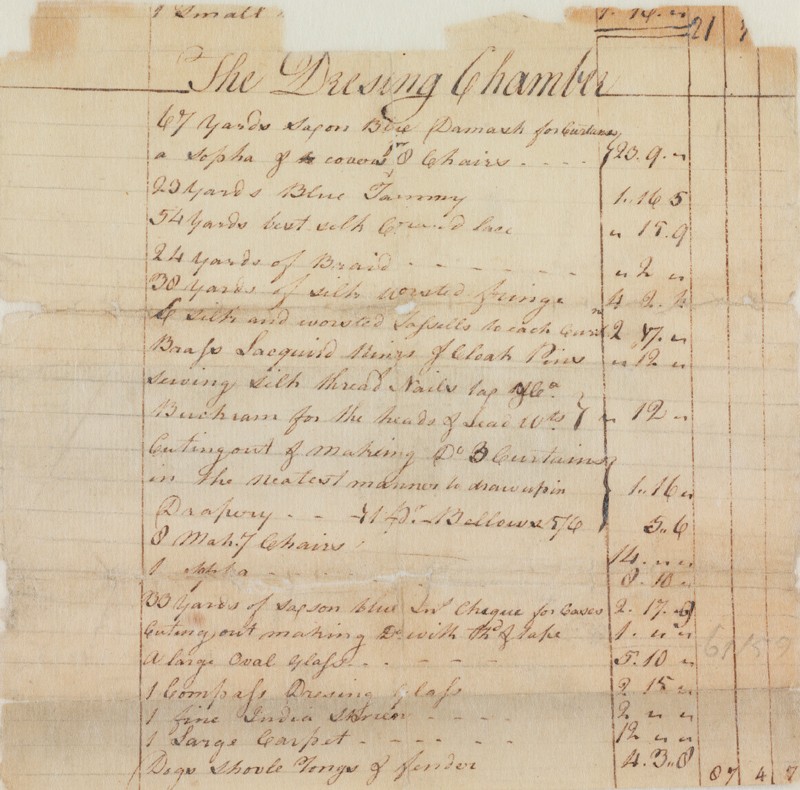 1 Small 1. 16. "
21 7
The Dresing Chamber
67 Yards Saxon Blue Damask for Curtains
a Sopha & covors 8 Chairs - - - - 23. 9. "
23 Yards Blue Tammy 1. 16 5
54 Yards best silk Covered lace " 15. 9
24 Yards of Braid - - - - - - - " 2 "
38 Yards of silk worsted fringe 4 2. 4
silk and worsted Tassells to each Curtn 2 7. "
Brass Lacquird Rings & Cloak Pins " 12 "
Sewing silk thread Nails tap &ca
Buckram for the heads & Lead Wts " 12 "
Cuting out & Making Do 3 Curtains
in the neatest manner to draw up in 1. 16 "
Drapery - - 1 pr Bellows 5/6 5. 6
8 Mahy Chairs 14. " "
1 Sopha - - - - 8. 10 "
33 Yards of Saxon blue Inh Cheque for Cases 2. 17. 9
Cuting out making Do with thd & tape 1. " "
A large Oval Glass - - - - - 5. 10 "
1 Compass Dresing Glass 2 15 "
1 fine India Skrien - - - - 2 " "
1 Large Carpet - - - - - - 12 " "
Dogs shovle Tongs & fender 4. 3. 8
87 4 7